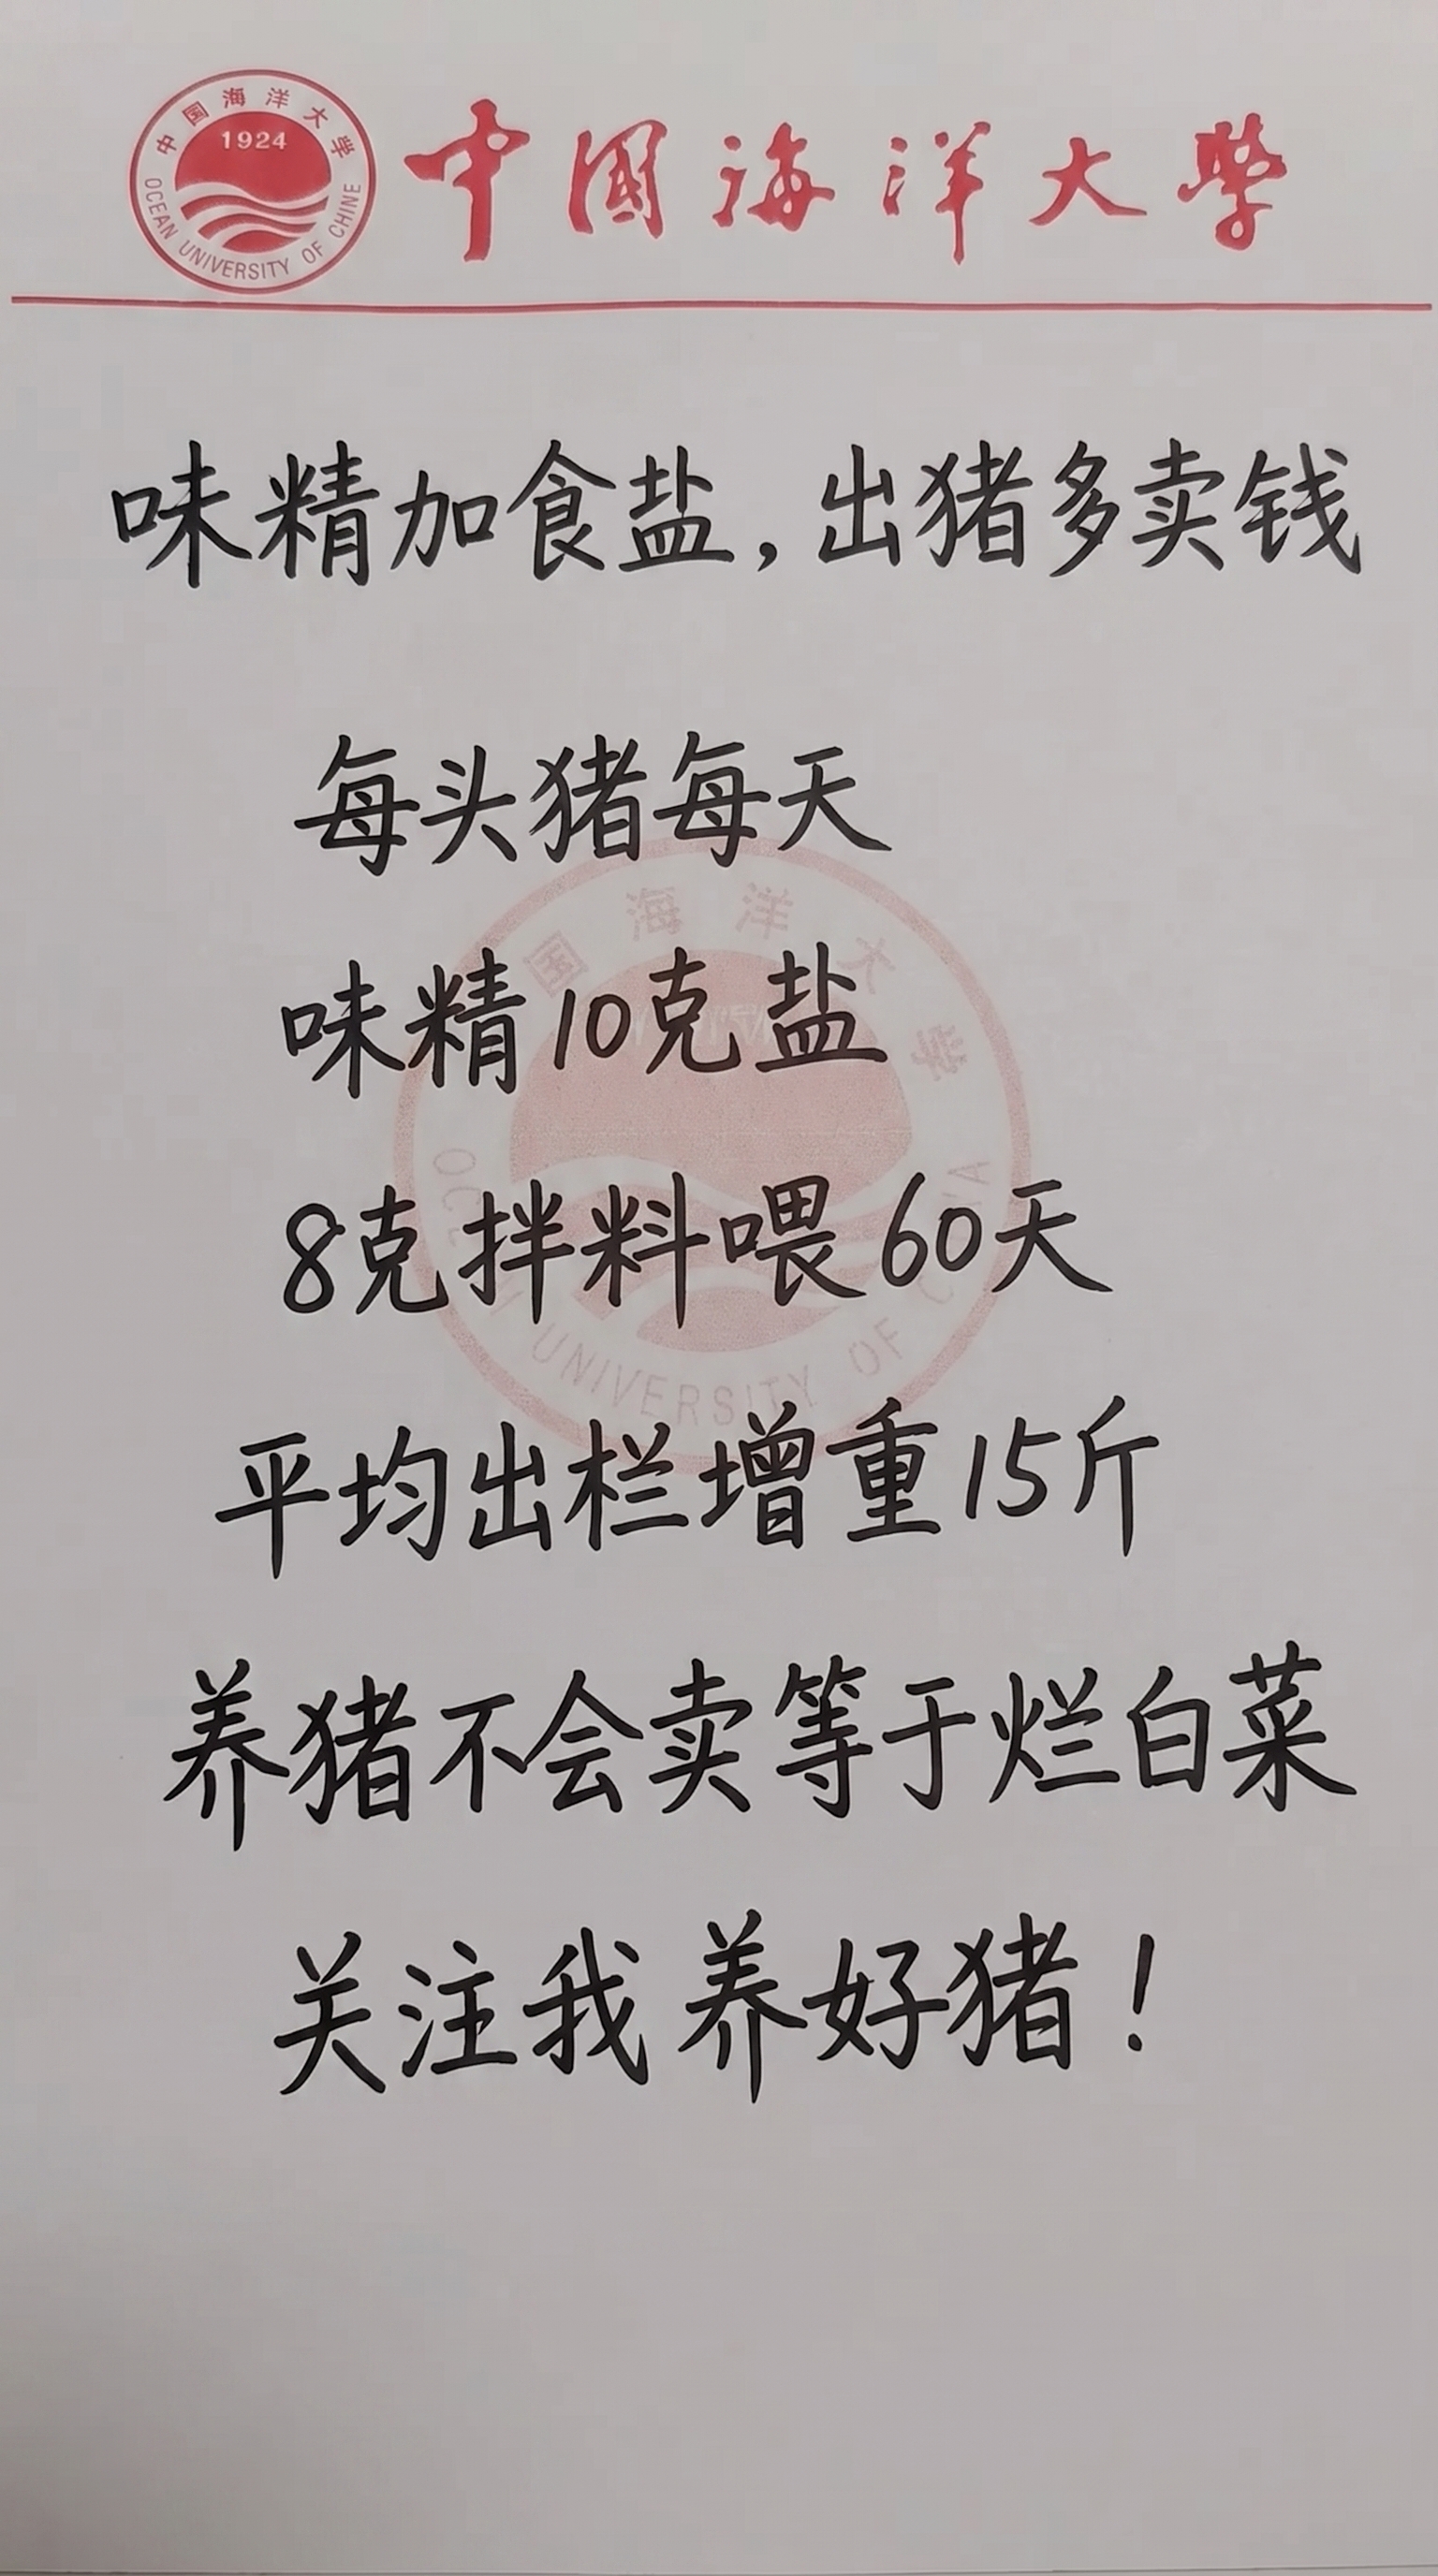 中国海洋大学
1924
OCEAN UNIVERSITY OF CHINE
中國海洋大學
味精加食盐,出猪多卖钱
每头猪每天
味精10克盐
8克拌料喂60天
平均出栏增重15斤
养猪不会卖等于烂白菜
关注我养好猪!
国海洋大学
UNIVERSITY OF